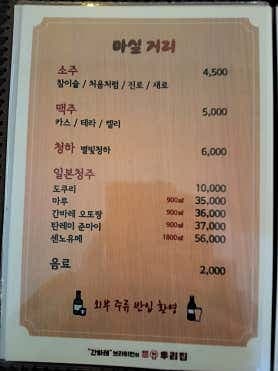 마실 거리
소주 4,500
참이슬 / 처음처럼 / 진로 / 새로
맥주 5,000
카스 / 테라 / 켈리
청하 별빛청하 6,000
일본청주
도쿠리 10,000
마루 900㎖ 35,000
간바레 오또짱 900㎖ 36,000
탄레이 준마이 900㎖ 37,000
센노유메 1800㎖ 56,000
음료 2,000
외부 주류 반입 환영
"간바레" 브라더펀의
우리집